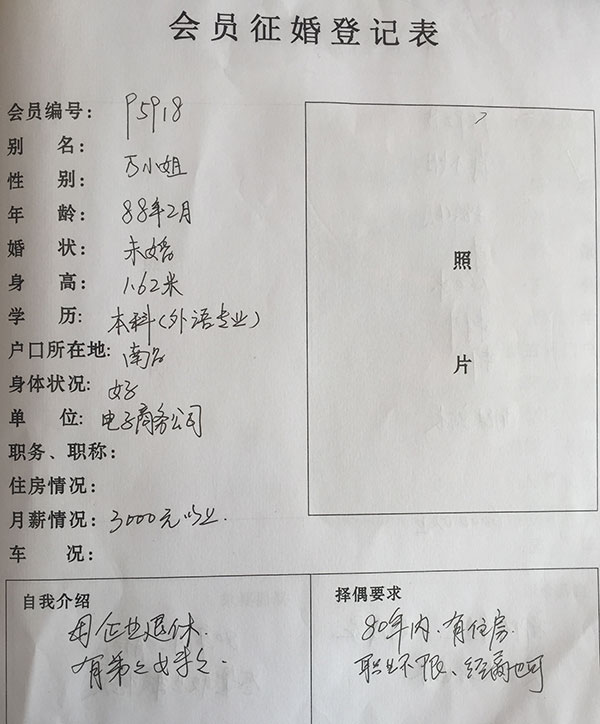 会员征婚登记表
会员编号: P5918
别 名:
性 别: 万小姐
年 龄: 88年2月
婚 状: 未婚
身 高: 1.62米
学 历: 本科(外语专业)
户口所在地: 南
身体状况: 好
单 位: 电子商务公司
职务、职称:
住房情况:
月薪情况: 3000元以上.
车 况:
照
片
自我介绍
企业退休.
有弟
择偶要求
80年内.有住房.
职业不限、经商也可